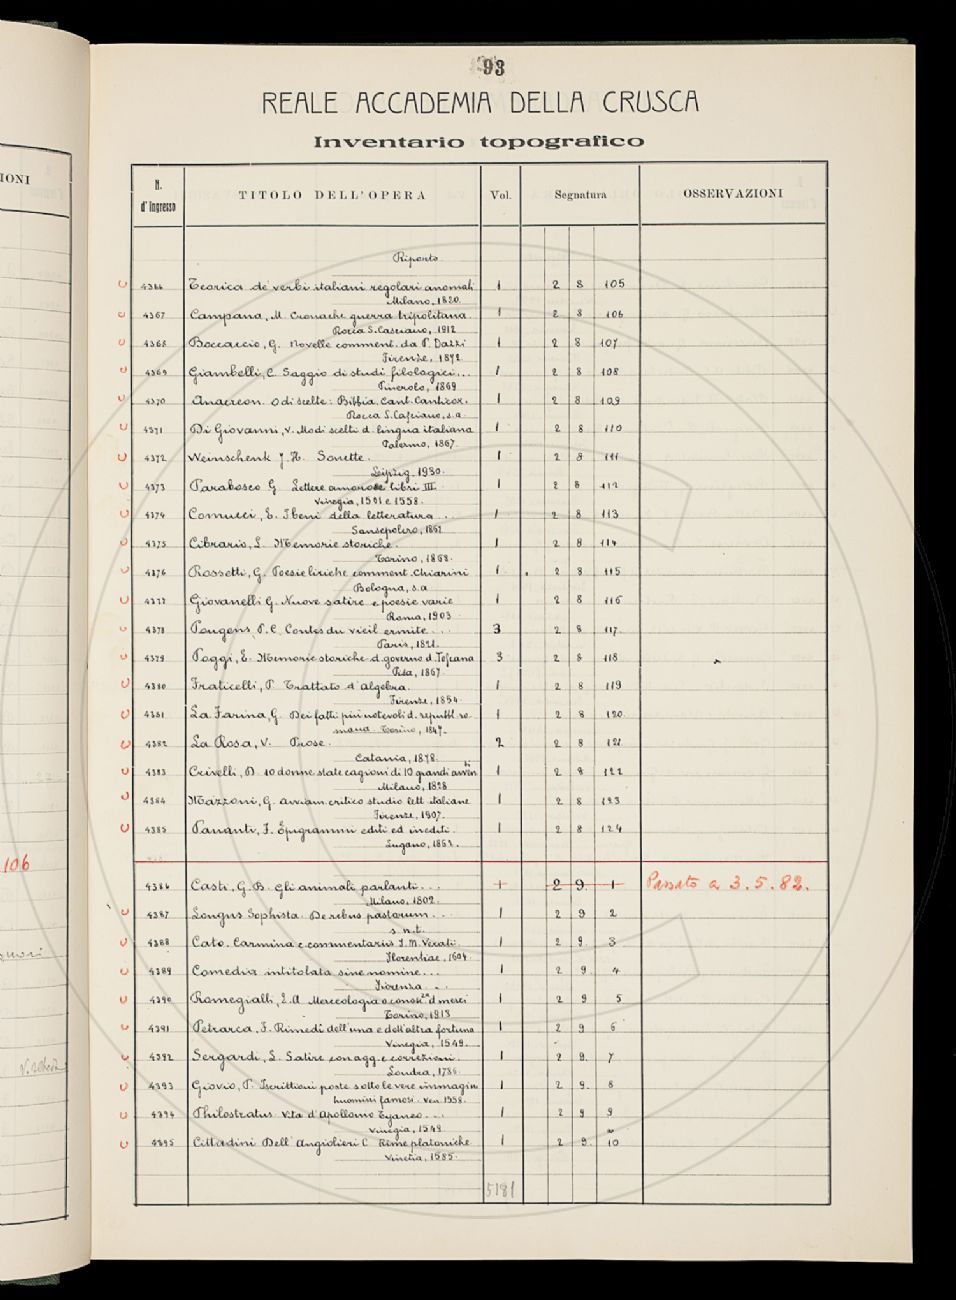 IONI
106
93
REALE ACCADEMIA DELLA CRUSCA
Inventario topografico
N. d'Ingresso TITOLO DELL'OPERA Vol. Segnatura OSSERVAZIONI
Riporto
4366 Teorica de' verbi italiani regolari anomali 1 2 8 105
Milano, 1820.
4367 Campana, M. Cronache guerra tripolitana. 1 2 8 106
Rocca S. Casciano, 1912
4368 Boccaccio, G. Novelle comment. da P. Dazzi 1 2 8 107
Firenze, 1872.
4369 Giambelli, C. Saggio di studi filologici... 1 2 8 108
Pinerolo, 1869
4370 Anacreon. Odi scelte: Bibbia. Cant. Canticor. 1 2 8 109
Rocca S. Casciano, s.a.
4371 Di Giovanni, V. Modi scelti d. lingua italiana 1 2 8 110
Palermo, 1867.
4372 Weinschenk J. H. Sonette. 1 2 8 111
Leipzig 1930.
4373 Parabosco G. Lettere amorose libri III. 1 2 8 112
Vinegia, 1561 e 1558.
4374 Comucci, E. I beni della letteratura... 1 2 8 113
Sansepolcro, 1861
4375 Cibrario, L. Memorie storiche. 1 2 8 114
Torino, 1868.
4376 Rossetti, G. Poesie liriche comment. Chiarini 1 2 8 115
Bologna, s.a
4377 Giovanelli G. Nuove satire e poesie varie 1 2 8 116
Roma, 1903
4378 Pougens, P. C. Contes du vieil ermite... 3 2 8 117
Paris, 1821.
4379 Poggi, E. Memorie storiche d. governo d. Toscana 3 2 8 118
Pisa, 1867.
4380 Fraticelli, P. Trattato d'algebra. 1 2 8 119
Firenze, 1854.
4381 La Farina, G. Dei fatti più notevoli d. republ. ro- 1 2 8 120
mana. Torino, 1847.
4382 La Rosa, V. Prose. 2 2 8 121
Catania, 1878.
4383 Crivelli, D. 10 donne state cagioni di 10 grandi avven 1 2 8 122
Milano, 1828
4384 Mazzoni, G. Avviam. critico studio lett. italiane 1 2 8 123
Firenze, 1907.
4385 Pananti, F. Epigrammi editi ed inediti. 1 2 8 124
Lugano, 1862.
4386 Casti, G. B. Gli animali parlanti... 1 2 9 1 Passato a 3.5.82.
Milano, 1802.
4387 Longus Sophista. De rebus pastorum... 1 2 9 2
s.n.t.
4388 Cato. Carmina e commentariis J. M. Verati. 1 2 9 3
Florentiae, 1604
4389 Comedia intitolata sine nomine... 1 2 9 4
Fiorenza...
4390 Romegialli, E. A. Merceologia o conosc.za d. merci 1 2 9 5
Torino, 1913
4391 Petrarca, F. Rimedi dell'una e dell'altra fortuna 1 2 9 6
Vinegia, 1549.
4392 Sergardi, L. Satire con agg. e correzioni. 1 2 9. 7
Londra, 1786.
4393 Giovio, P. Iscrittioni poste sotto le vere immagin 1 2 9. 8
huomini famosi. Ven. 1558.
4394 Philostratus. Vita d'Apollonio Tyaneo... 1 2 9 9
Vinegia, 1549.
4395 Cittadini Dell'Angiolieri C. Rime platoniche 1 2 9. 10
Venetia, 1585.
5181